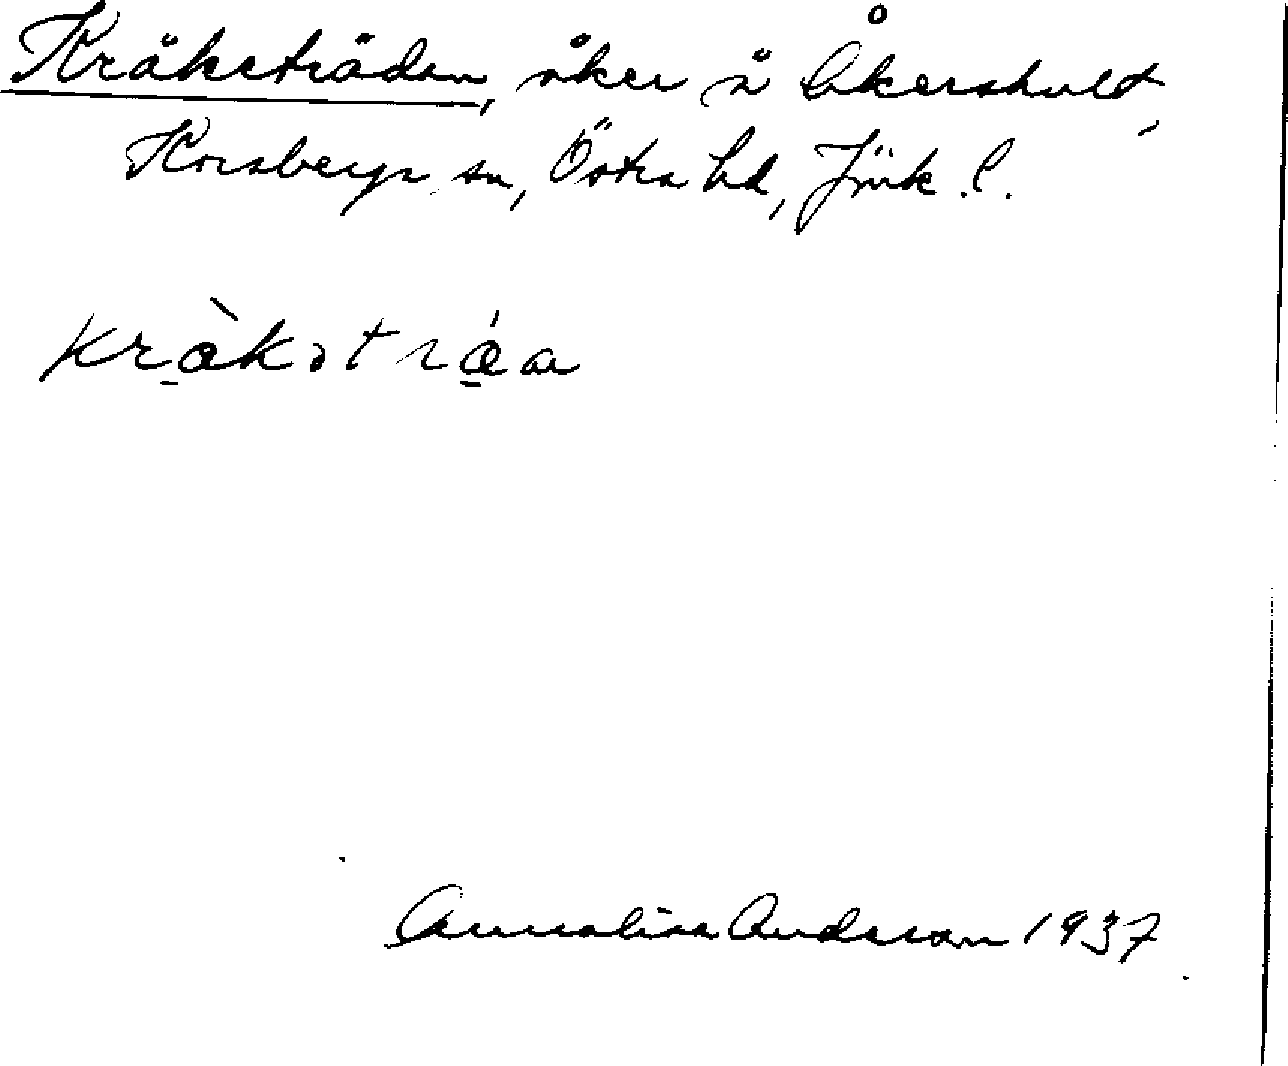 Kräketrädan, åker å Åkershult,
Korsberga sn, Östra hd, Jönk. l.
kræ̀kətrǽa
Annalisa Anderson 1937